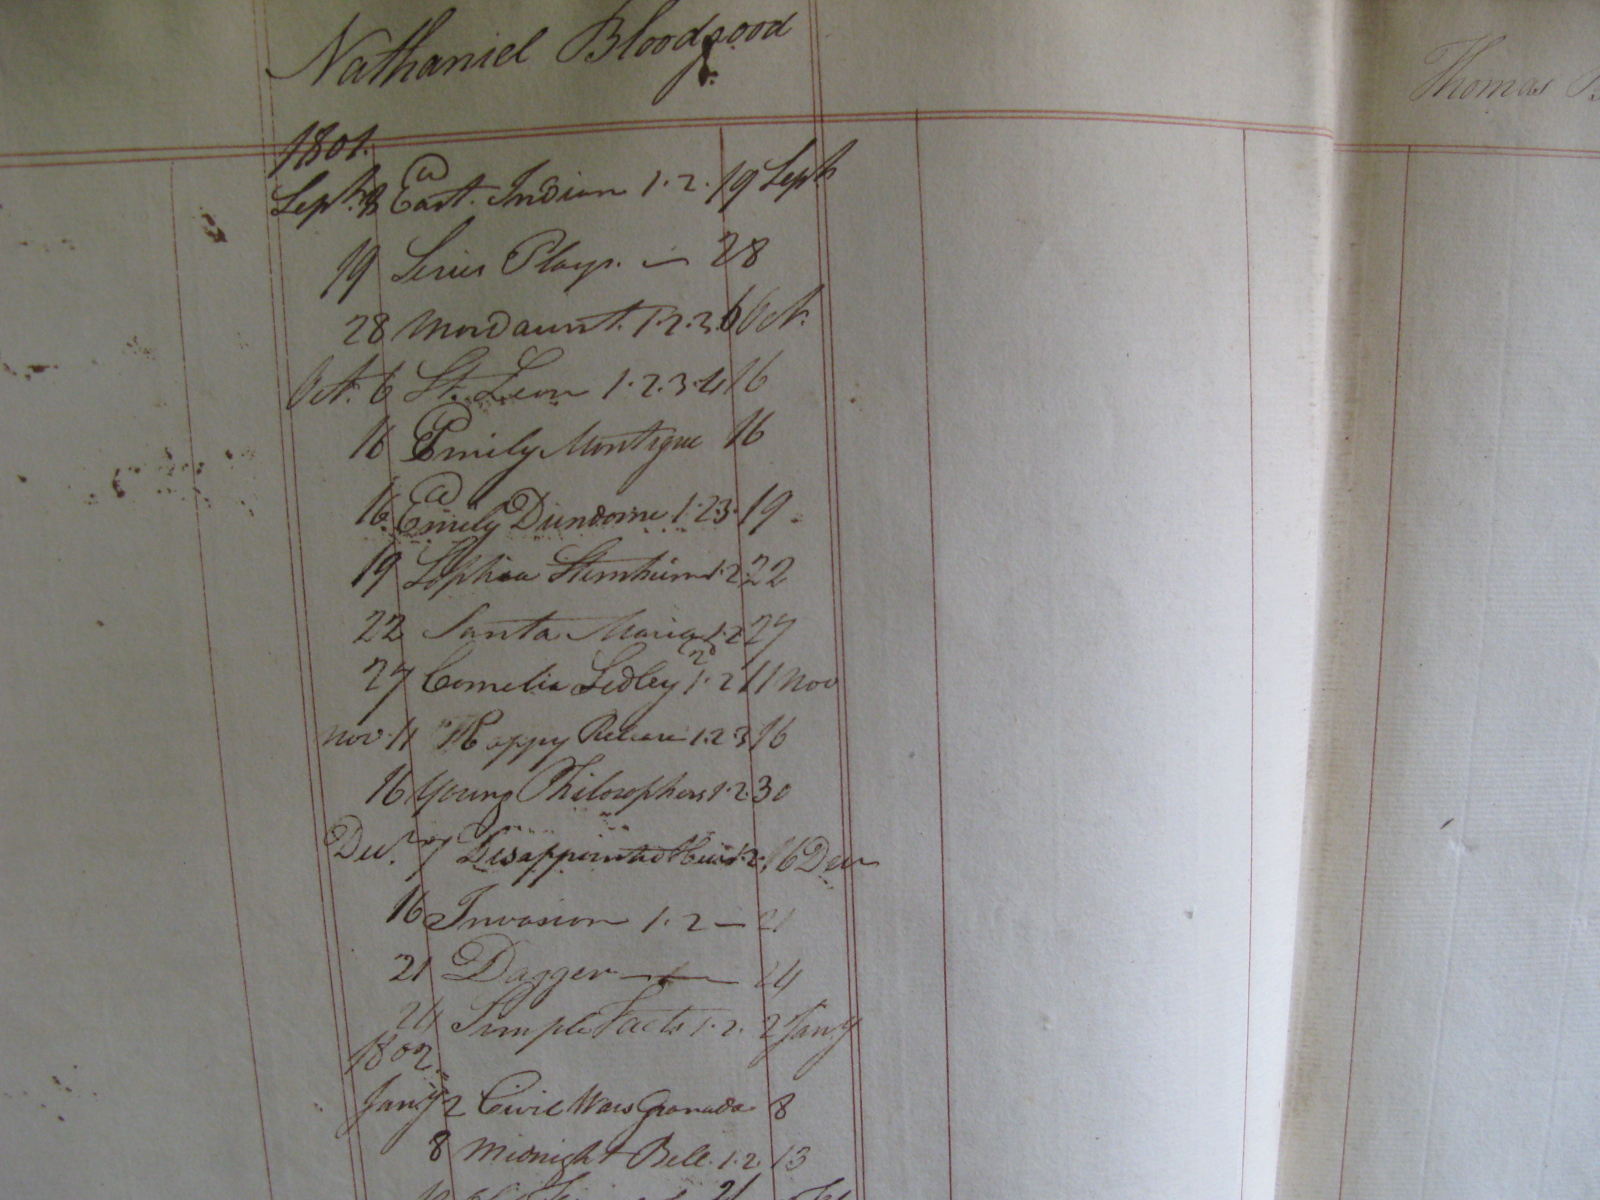 Nathaniel Bloodgood
Thomas
1801.
Sept. 8 East Indian 1.2. 19 Sept
19 Series Plays. — 28
28 Mordaunt. 1.2.3. 6 Oct.
Oct. 6 St. Leon 1.2.3.4 16
16 Emily Montague 16
16 Emily Dundorne 1.2 3. 19
19 Sophia Sternheim 1.2 22
22 Santa Maria 1.2 27
27 Cornelia Sedley 1.2 11 Nov
Nov. 11 Happy Release 1.2 3 16
16 Young Philosophers 1.2. 30
Decr. 7 Disappointed Heir 1.2. 16 Decr
16 Invasion 1.2 — 21
21 Dagger — 24
24 Simple Facts 1.2. 2 Jany
1802.
Jany 2 Civil Wars Granada 8
8 Midnight Bell. 1.2. 13